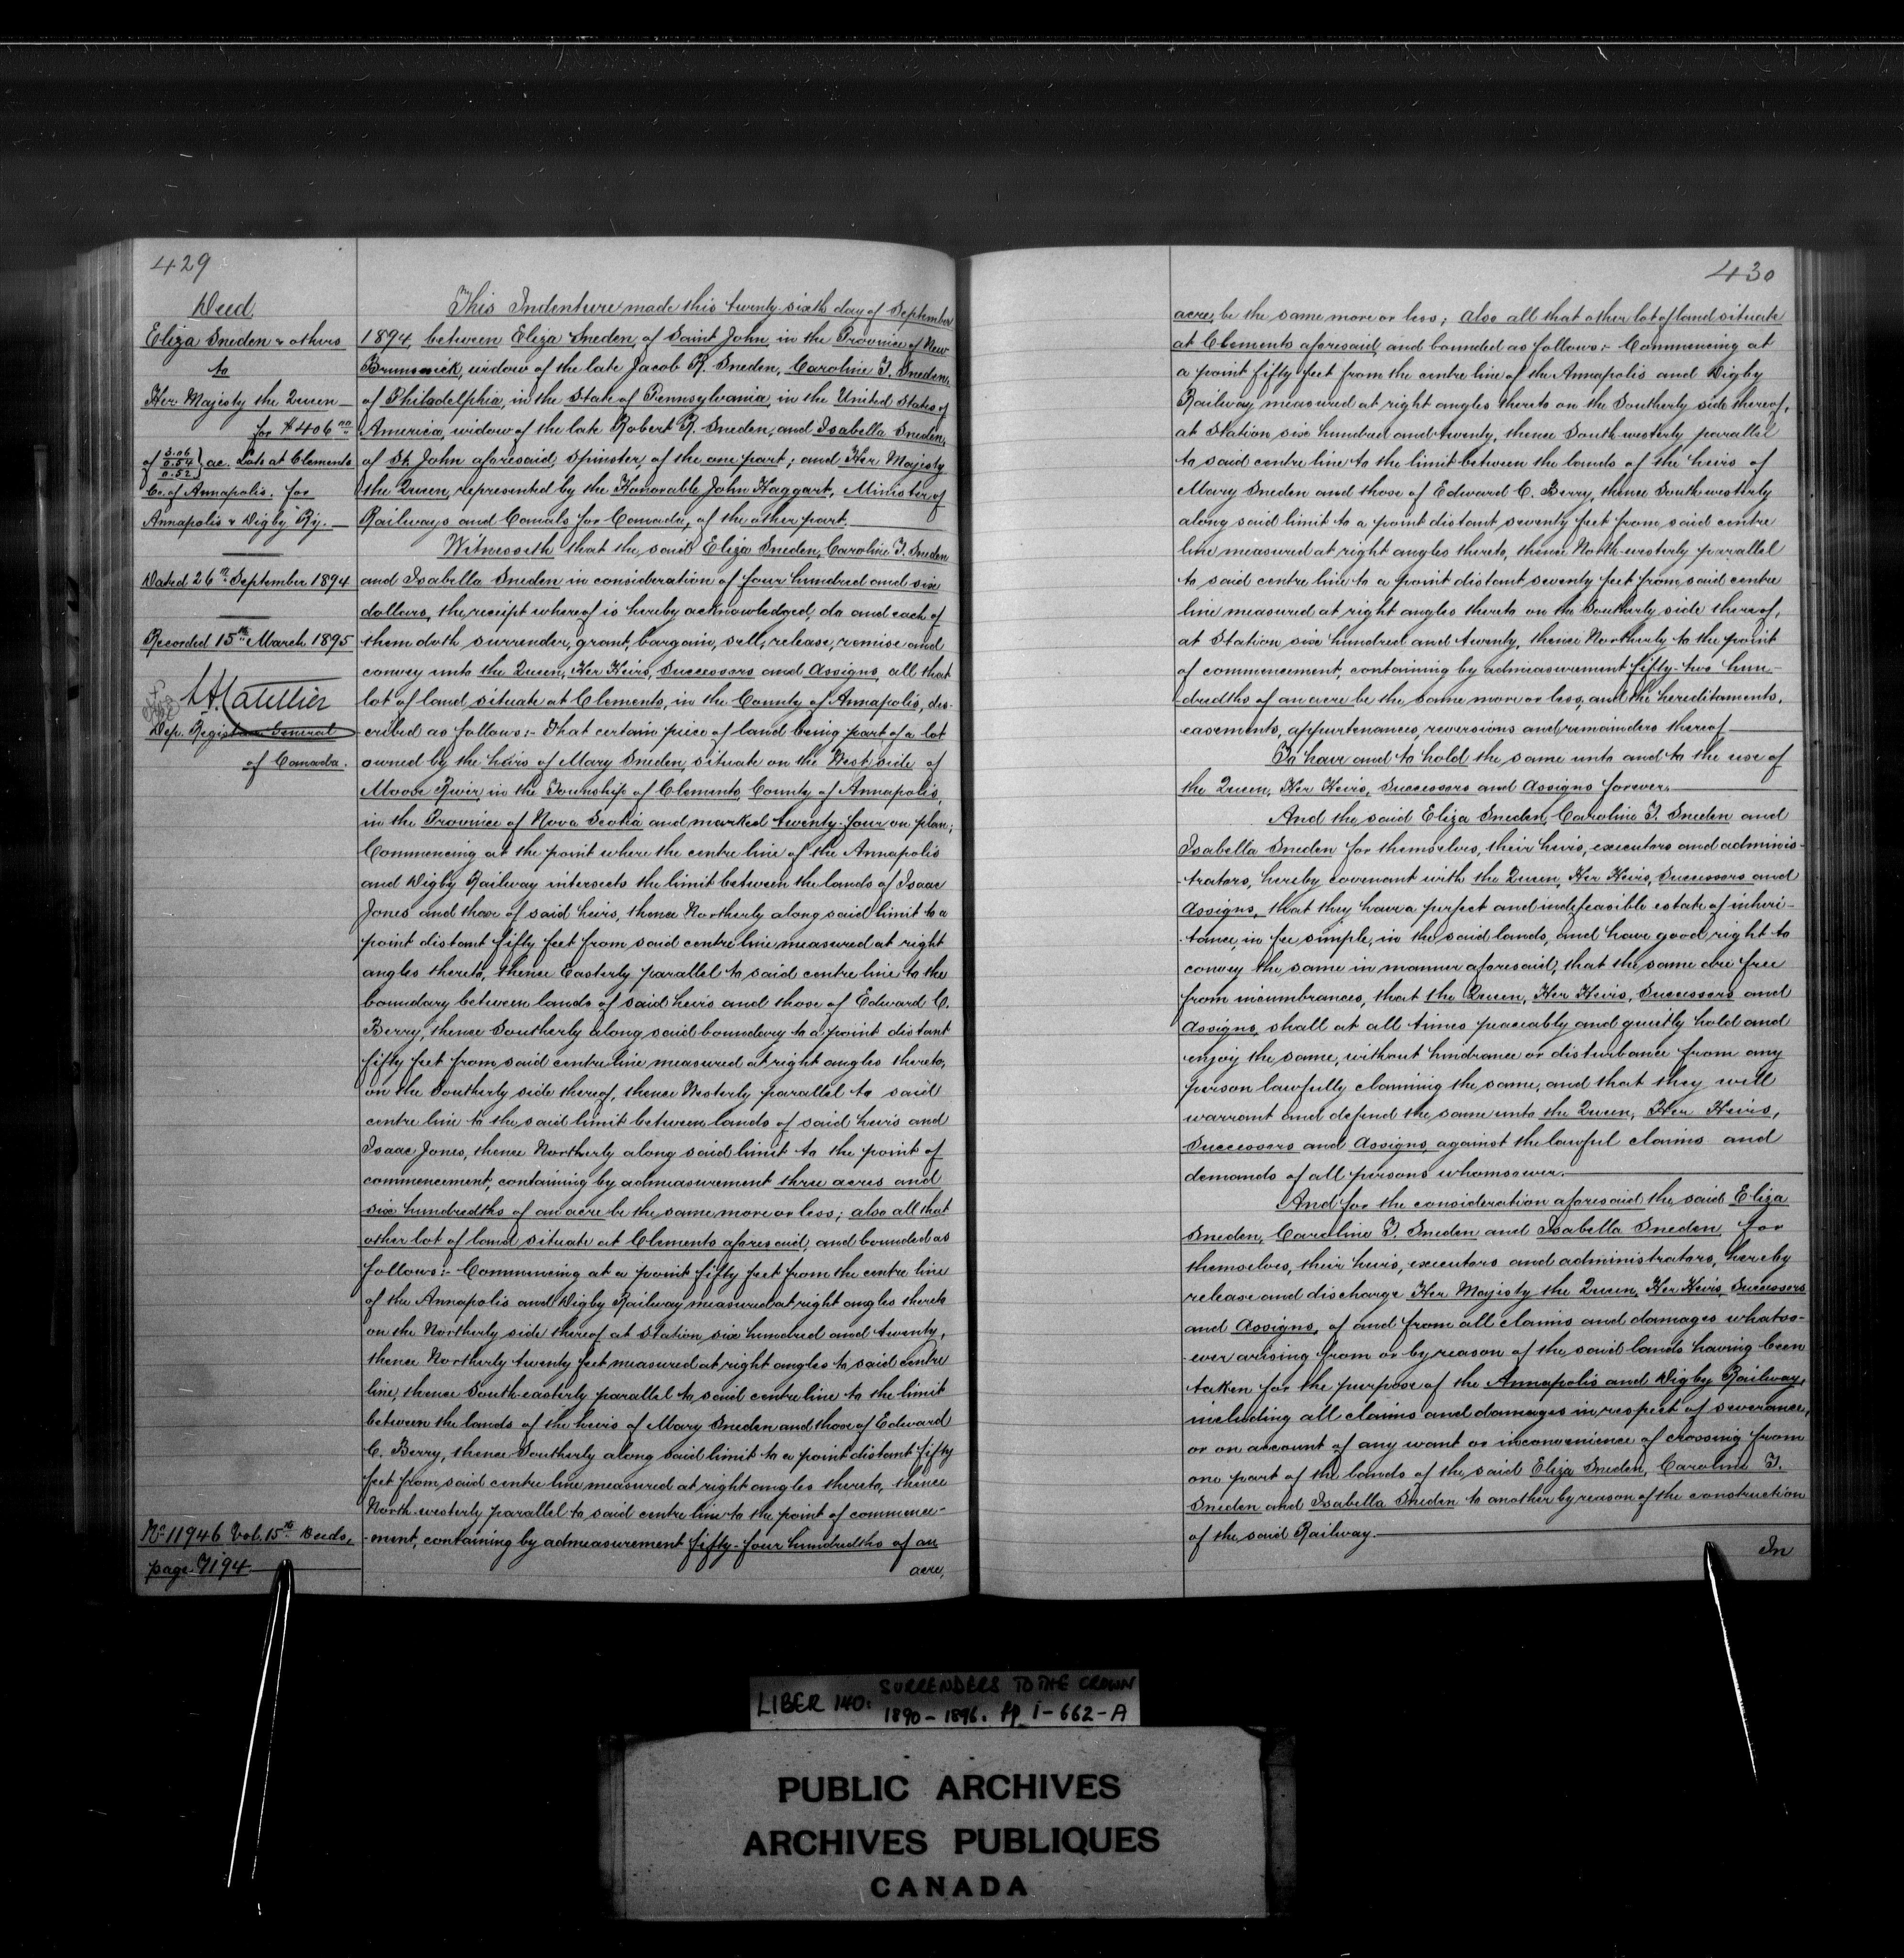 429
Deed
Eliza Sneden & others
to
Her Majesty the Queen
for $406 00
of 3.06 0.54 0.52 } ac. Lots at Clements
Co. of Annapolis. for
Annapolis & Digby Ry.
Dated 26th September 1894
Recorded 15th March 1895
Dep. Registrar General
of Canada.
No 11946 Vol. 15th Deeds,
page 7194
This Indenture made this twenty-sixth day of September
1894, between Eliza Sneden, of Saint John, in the Province of New
Brunswick, widow of the late Jacob R. Sneden, Caroline T. Sneden,
of Philadelphia, in the State of Pennsylvania, in the United States of
America, widow of the late Robert R. Sneden, and Isabella Sneden,
of St. John aforesaid, Spinster, of the one part; and Her Majesty
the Queen, represented by the Honorable John Haggart, Minister of
Railways and Canals for Canada, of the other part.
Witnesseth that the said Eliza Sneden, Caroline T. Sneden
and Isabella Sneden in consideration of four hundred and six
dollars, the receipt whereof is hereby acknowledged, do and each of
them doth surrender, grant, bargain, sell, release, remise and
convey unto the Queen, Her Heirs, Successors and Assigns, all that
lot of land situate at Clements, in the County of Annapolis, des-
cribed as follows:- That certain piece of land being part of a lot
owned by the heirs of Mary Sneden, situate on the West side of
Moose River, in the Township of Clements, County of Annapolis,
in the Province of Nova Scotia and marked twenty-four on plan;
Commencing at the point where the centre line of the Annapolis
and Digby Railway intersects the limit between the lands of Isaac
Jones and those of said heirs, thence Northerly along said limit to a
point distant fifty feet from said centre line measured at right
angles thereto, thence Easterly parallel to said centre line to the
boundary between lands of said heirs and those of Edward C.
Berry, thence Southerly along said boundary to a point distant
fifty feet from said centre line measured at right angles thereto,
on the Southerly side thereof, thence Westerly parallel to said
centre line to the said limit between lands of said heirs and
Isaac Jones, thence Northerly along said limit to the point of
commencement, containing by admeasurement three acres and
six hundredths of an acre be the same more or less; also all that
other lot of land situate at Clements aforesaid, and bounded as
follows:- Commencing at a point fifty feet from the centre line
of the Annapolis and Digby Railway measured at right angles thereto
on the Northerly side thereof at Station six hundred and twenty,
thence Northerly twenty feet measured at right angles to said centre
line, thence South-easterly parallel to said centre line to the limit
between the lands of the heirs of Mary Sneden and those of Edward
C. Berry, thence Southerly along said limit to a point distant fifty
feet from said centre line measured at right angles thereto, thence
North-westerly parallel to said centre line to the point of commence-
-ment, containing by admeasurement fifty-four hundredths of an
acre,
430
acre, be the same more or less; also all that other lot of land situate
at Clements aforesaid, and bounded as follows:- Commencing at
a point fifty feet from the centre line of the Annapolis and Digby
Railway measured at right angles thereto on the Southerly side thereof,
at Station six hundred and twenty, thence South-westerly parallel
to said centre line to the limit between the lands of the heirs of
Mary Sneden and those of Edward C. Berry, thence South-westerly
along said limit to a point distant seventy feet from said centre
line measured at right angles thereto, thence North-westerly parallel
to said centre line to a point distant seventy feet from said centre
line measured at right angles thereto on the Southerly side thereof,
at Station six hundred and twenty, thence Northerly to the point
of commencement, containing by admeasurement fifty-two hun-
-dredths of an acre be the same more or less, and the hereditaments,
easements, appurtenances, reversions and remainders thereof
To have and to hold the same unto and to the use of
the Queen, Her Heirs, Successors and Assigns forever.
And the said Eliza Sneden, Caroline T. Sneden and
Isabella Sneden for themselves, their heirs, executors and adminis-
-trators, hereby covenant with the Queen, Her Heirs, Successors and
Assigns, that they have a perfect and indefeasible estate of inheri-
-tance, in fee simple, in the said lands, and have good right to
convey the same in manner aforesaid; that the same are free
from incumbrances, that the Queen, Her Heirs, Successors and
Assigns, shall at all times peaceably and quietly hold and
enjoy the same, without hindrance or disturbance from any
person lawfully claiming the same, and that they will
warrant and defend the same unto the Queen, Her Heirs,
Successors and Assigns, against the lawful claims and
demands of all persons whomsoever.
And for the consideration aforesaid the said Eliza
Sneden, Caroline T. Sneden and Isabella Sneden, for
themselves, their heirs, executors and administrators, hereby
release and discharge Her Majesty the Queen, Her Heirs, Successors
and Assigns, of and from all claims and damages whatso-
-ever arising from or by reason of the said lands having been
taken for the purpose of the Annapolis and Digby Railway,
including all claims and damages in respect of severance,
or on account of any want or inconvenience of crossing from
one part of the lands of the said Eliza Sneden, Caroline T.
Sneden and Isabella Sneden to another by reason of the construction
of the said Railway.
In
LIBER 140: SURRENDERS TO THE CROWN
1890-1896. pp 1-662-A
PUBLIC ARCHIVES
ARCHIVES PUBLIQUES
CANADA